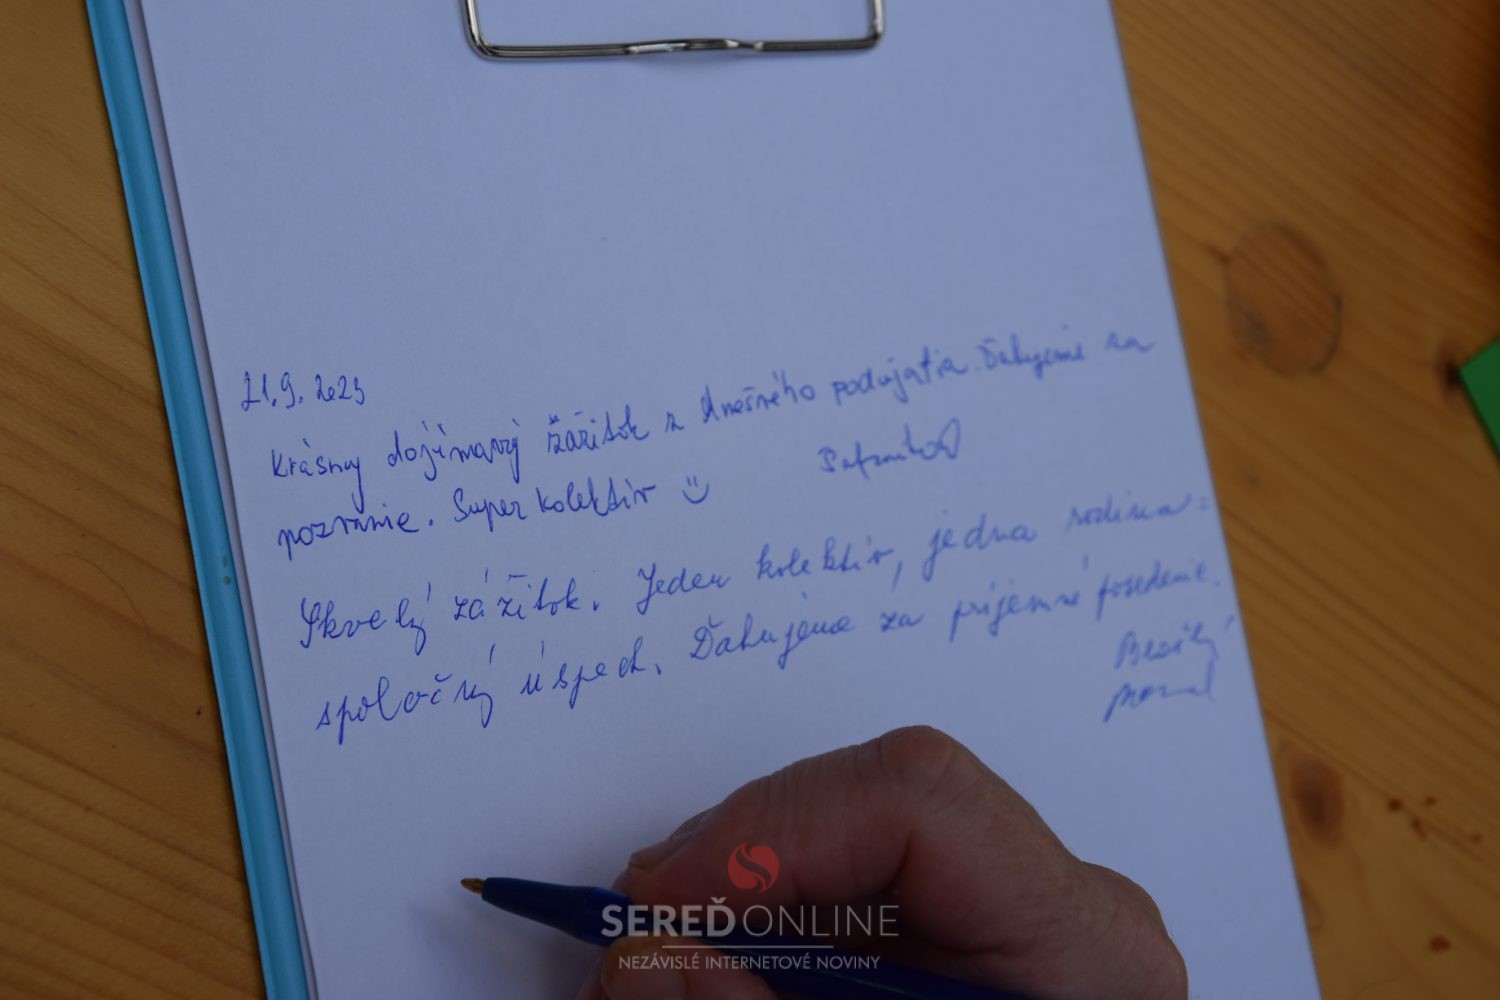 21.9.2023
Krásny dojímavý zážitok z dnešného podujatia. Ďakujeme za
pozvanie. Super kolektív :)
Skvelý zážitok. Jeden kolektív, jedna rodina =
spoločný úspech. Ďakujeme za príjemné posedenie.
SEREĎONLINE
NEZÁVISLÉ INTERNETOVÉ NOVINY